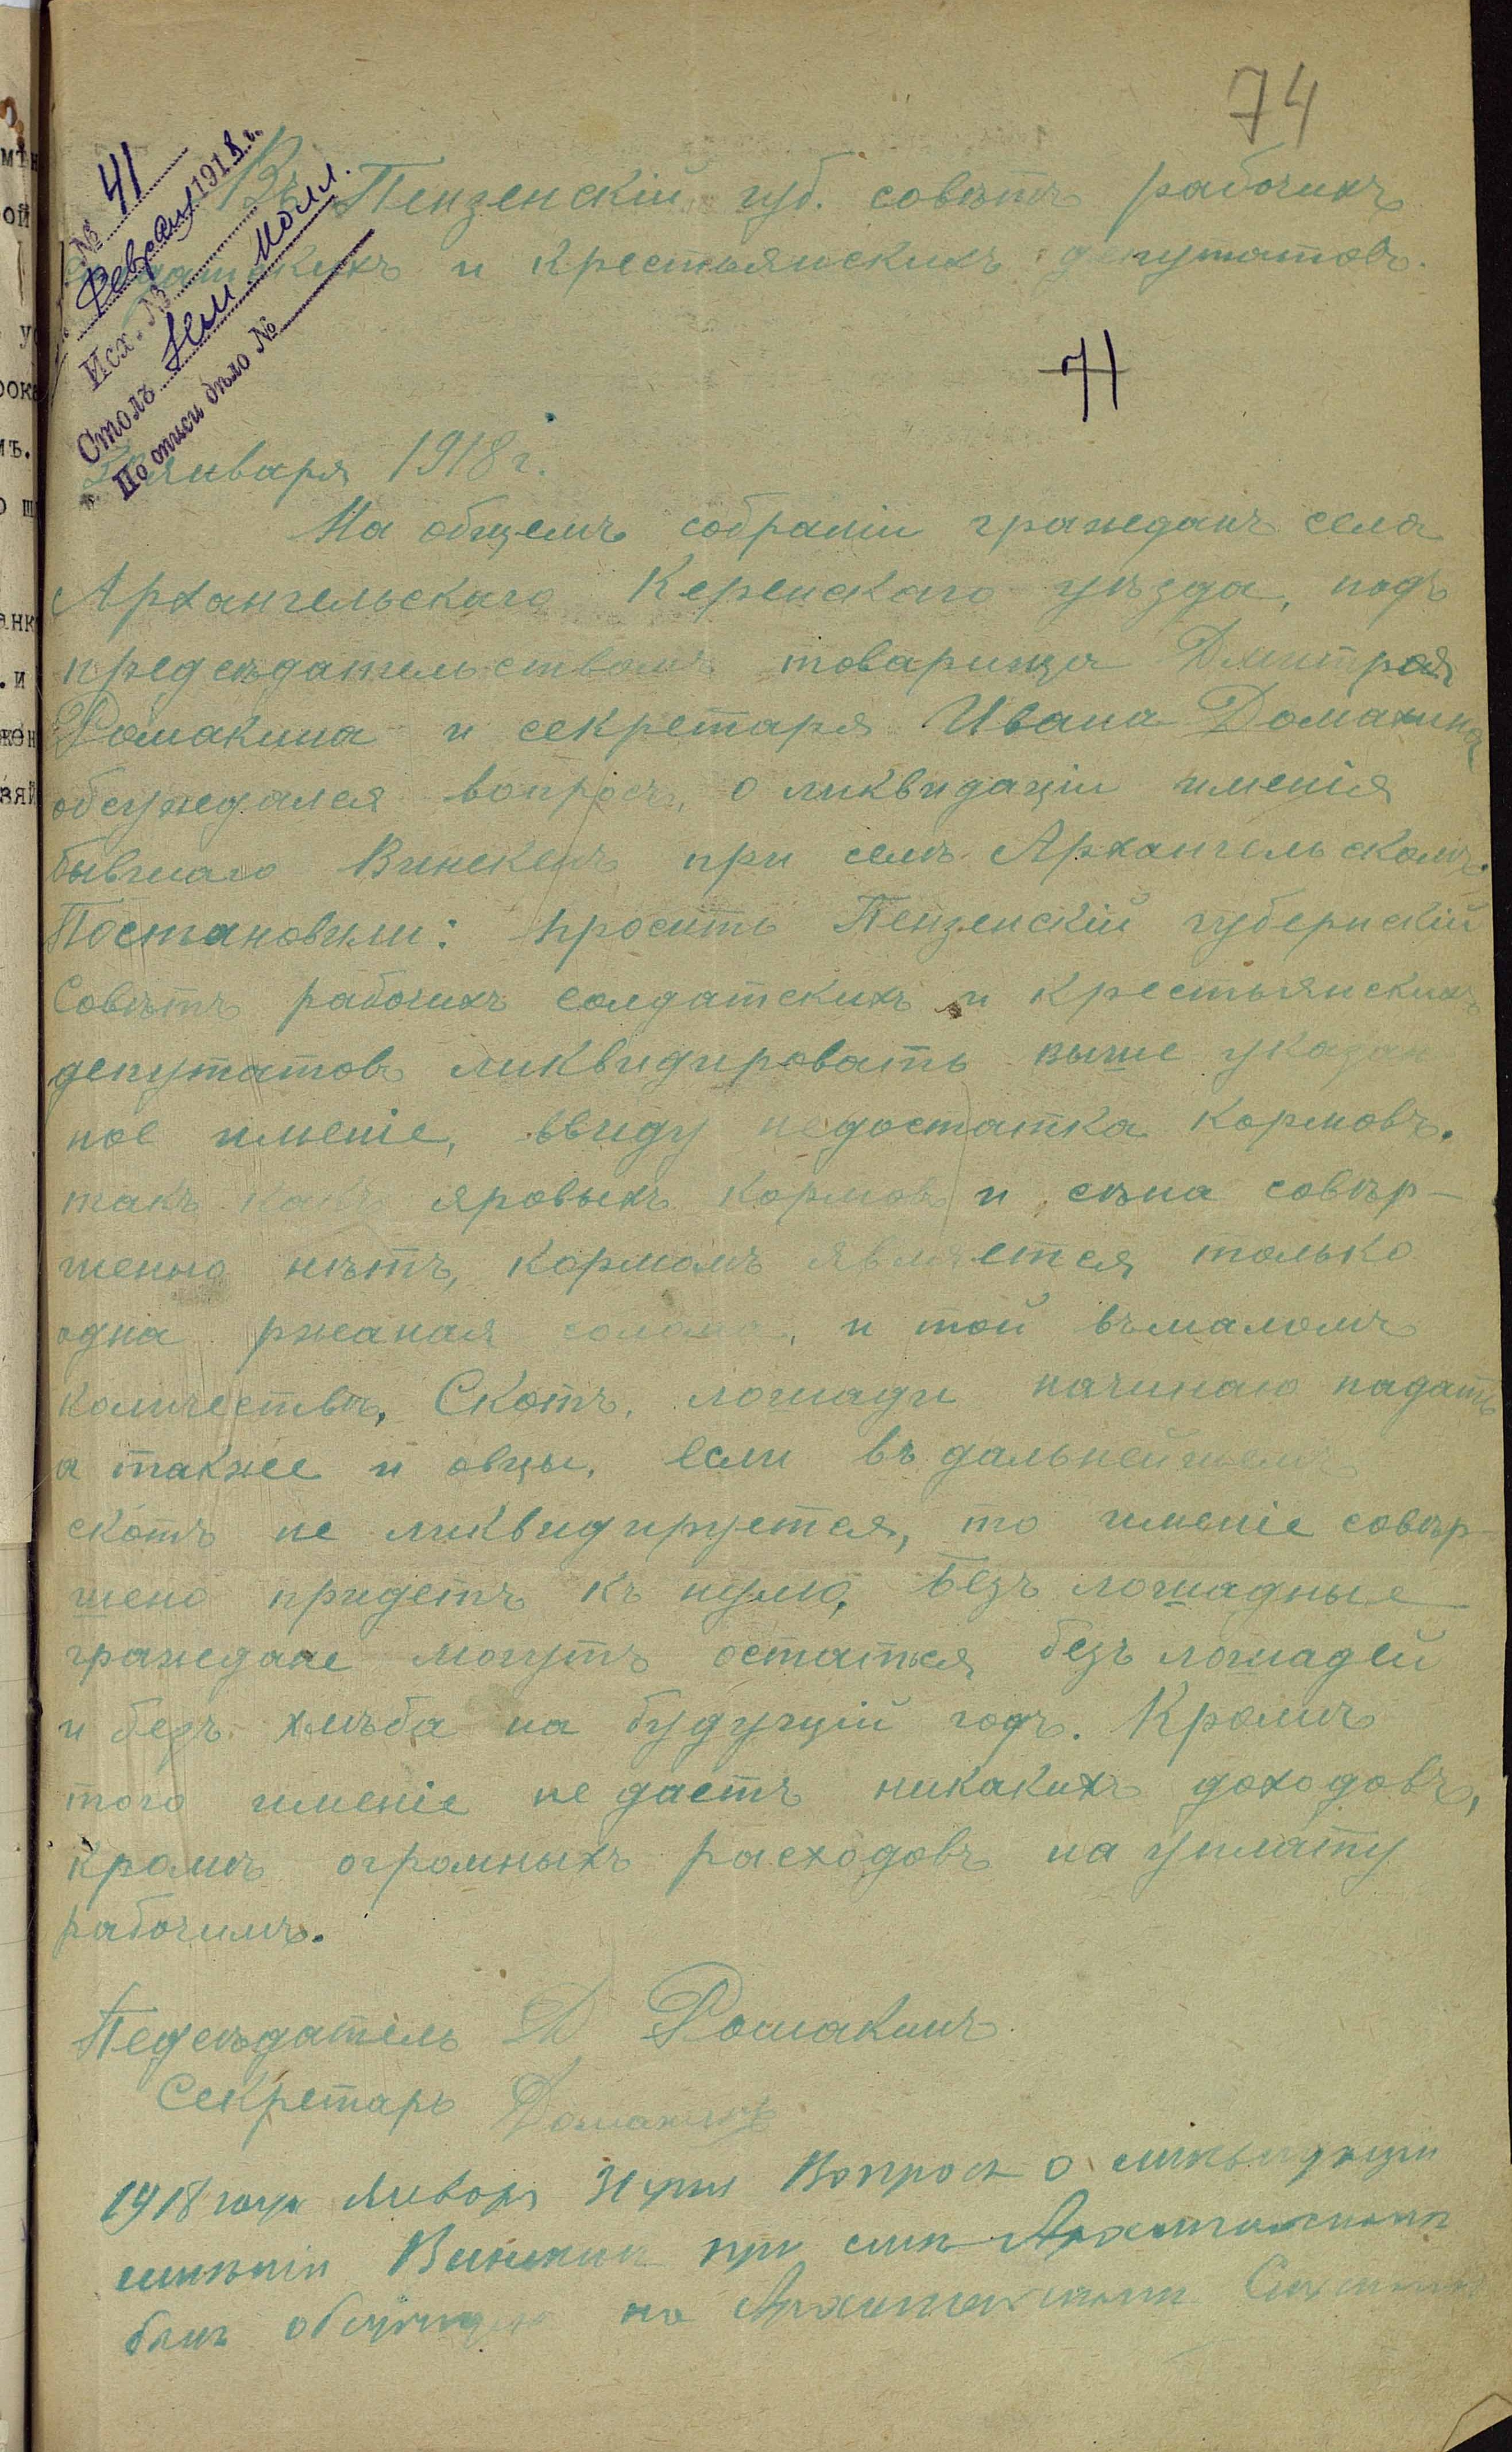 74
№ 41
Февраля 1918 г.
Исх. №
Столъ Зем
По описи дѣло №
Въ Пензенскій губ. совѣтъ рабочихъ
и крестьянскихъ депутатовъ.
71
января 1918 г.
На общемъ собраніи гражданъ села
Архангельскаго Керенскаго уѣзда, подъ
предсѣдательствомъ товарища Дмитрая
Ромакина и секретаря Ивана Домахина
обсуждался вопросъ, о ликвидаціи именія
бывшаго Винекенъ при селѣ Архангельскомъ.
Постановили: просить Пензенскій губернскій
Совѣтъ рабочихъ солдатскихъ и крестьянскихъ
депутатовъ ликвидировать выше указан
ное именіе, ввиду недостатка кормовъ.
такъ какъ яровыхъ кормовъ и сѣна совѣр-
шенно нѣтъ, кормомъ является только
одна ржаная солома, и той въ маломъ
количествѣ, Скотъ, лошади начинаю падать
а также и овцы, если въ дальнейшемъ
скотъ не ликвидируется, то именіе совѣр-
шено придетъ къ нулю, безъ лошадные
граждане могутъ остаться безъ лошадей
и безъ хлѣба на будущій годъ. Кромѣ
того именіе не даетъ никакихъ доходовъ,
кромѣ огромныхъ расходовъ на уплату
рабочимъ.
Педсѣдатель Д Ромакинъ
Секретарь Домахинъ
1918 года Января 31 дня Вопросъ о ликвидаціи
имѣнія при селѣ Архангельскомъ
былъ на Архангельскомъ